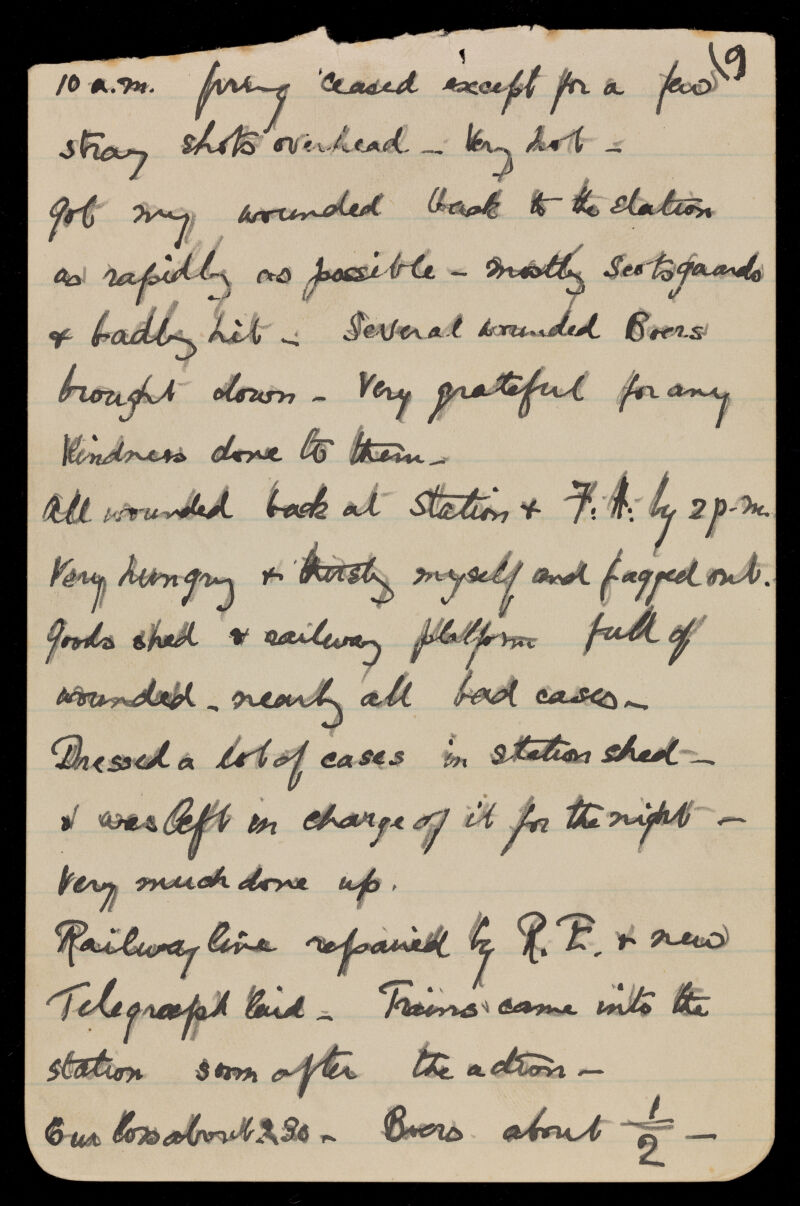 19
10 a.m. firing ceased except for a few
stray shots overhead – Very hot –
Got my wounded back to the station
as rapidly as possible – mostly Scotsguards
& badly hit – Several wounded Boers
brought down – Very grateful for any
kindness done to them –
All wounded back at Station & F. H. by 2 p.m.
Very hungry & thirsty myself and fagged out.
Goods shed & railway platform full of
wounded – nearly all bad cases –
Dressed a lot of cases in station shed –
& was left in charge of it for the night –
Very much done up.
Railway line repaired by R. E. & new
Telegraph laid – Trains came into the
station soon after the action –
Our loss about – Boers about 1/2 –